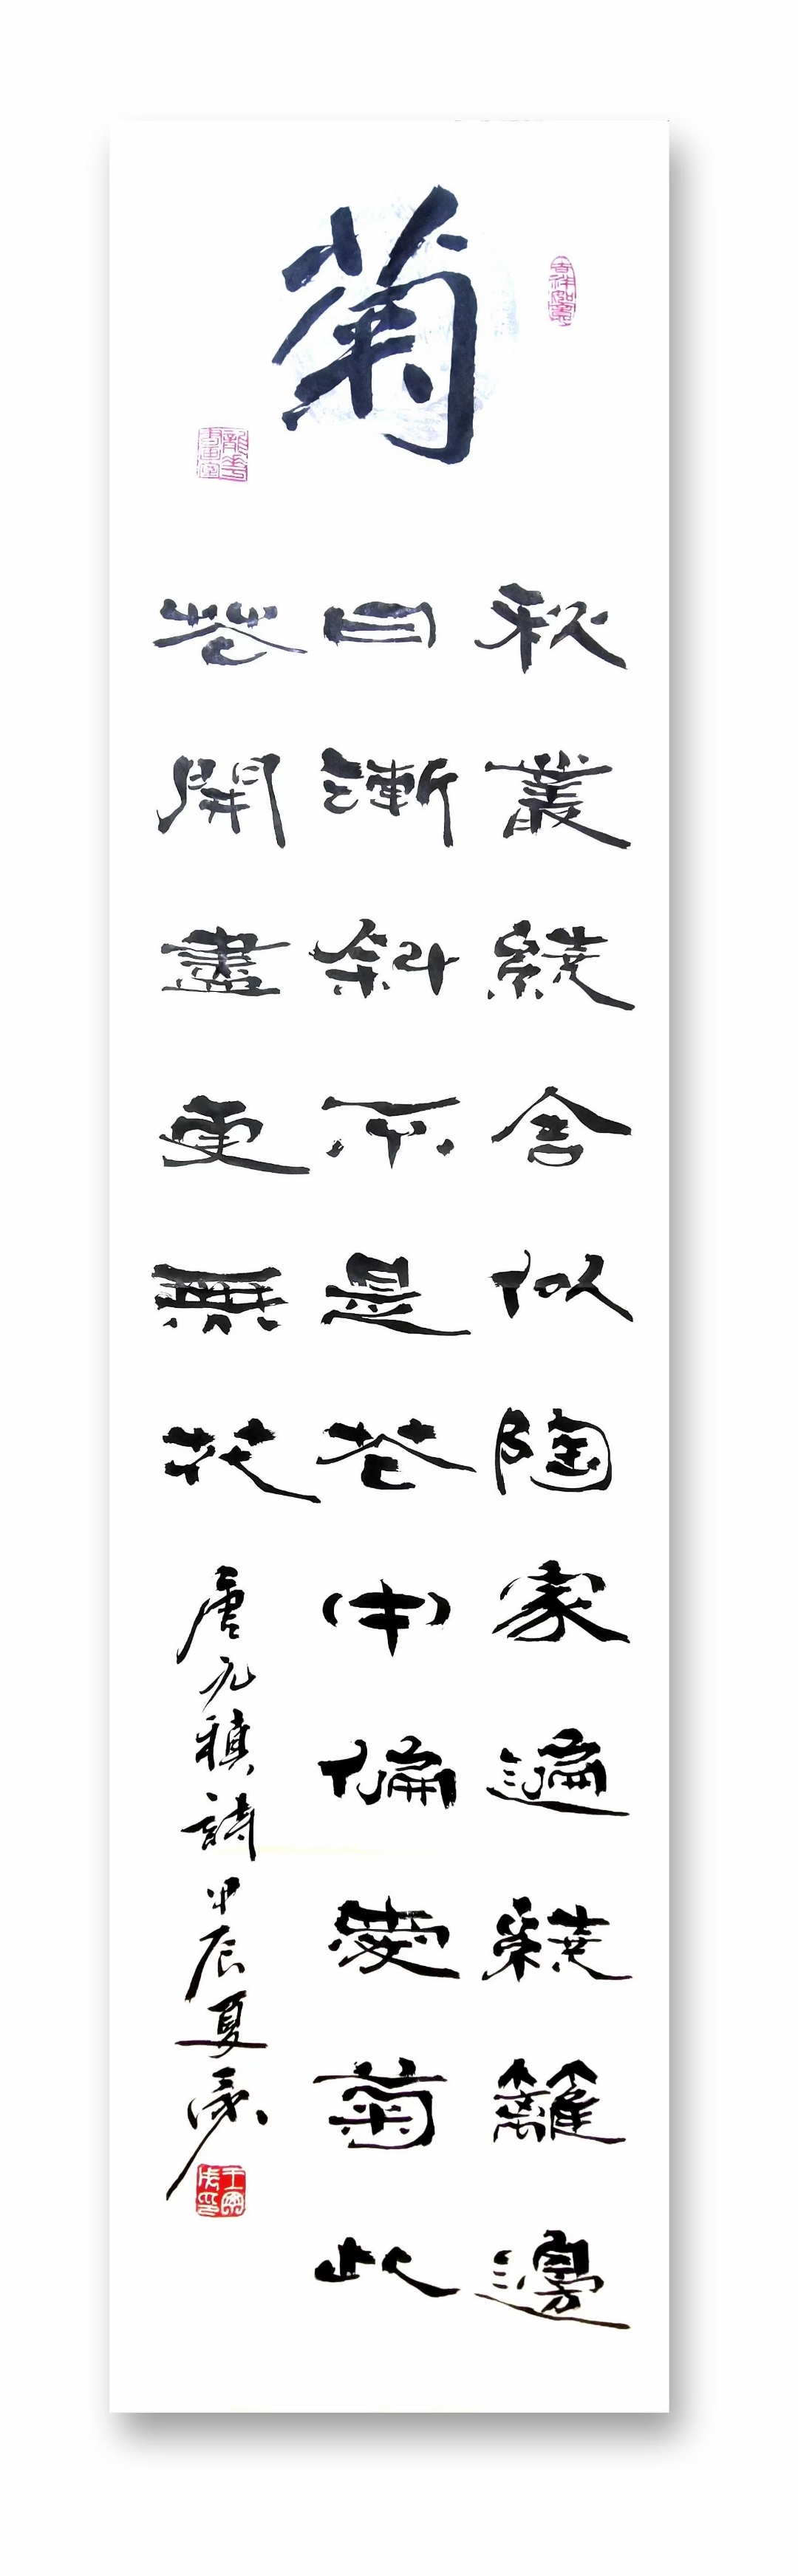 菊
吉祥如意
秋叢繞舍似陶家遍繞籬邊
日漸斜不是花中偏愛菊此
花開盡更無花
唐元稹詩甲辰夏